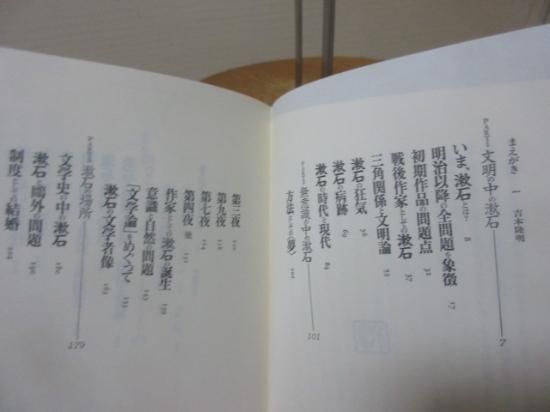 まえがき 一 吉本隆明
PART 1 文明の中の漱石 7
いま、漱石とは? 8
明治以降の全問題を象徴 17
初期作品の問題点
戦後作家としての漱石 37
三角関係と文明論
漱石の狂気
漱石の病跡
漱石の時代と現代
無意識の中の漱石 101
方法としての〈夢〉 102
第三夜
第九夜
第七夜
第四夜 他
作家としての漱石の誕生
意識と自然の問題
『文学論』をめぐって
漱石の文学者像
漱石の場所 179
文学史の中の漱石
漱石と鷗外の問題
制度としての結婚